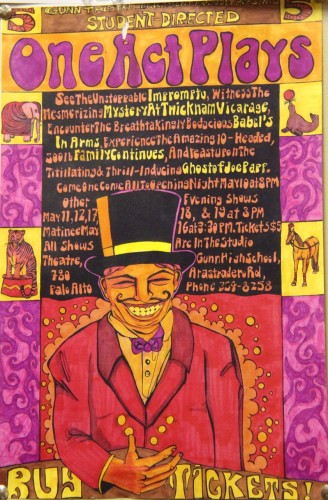 5 5
STUDENT DIRECTED
One Act Plays
See The Unstoppable Impromptu, Witness The
Mesmerizing Mystery At Twicknam Vicarage,
Encounter The Breathtakingly Bodacious Babel's
In Arms, Experience The Amazing 10-Headed,
Soon Family Continues, And Feast upon The
Titillating & Thrill-Inducing Ghost of Joe Papp.
Come One Come All To Opening Night May 10 at 8PM
Other Evening Shows
May 11, 12, 17, 18, & 19 at 8PM
Matinee May 16 at 3:30PM. Tickets $5
All Shows Are In The Studio
Theatre, Gunn High School,
780 Arastradero Rd,
Palo Alto Phone 354-8258
BUY TICKETS!